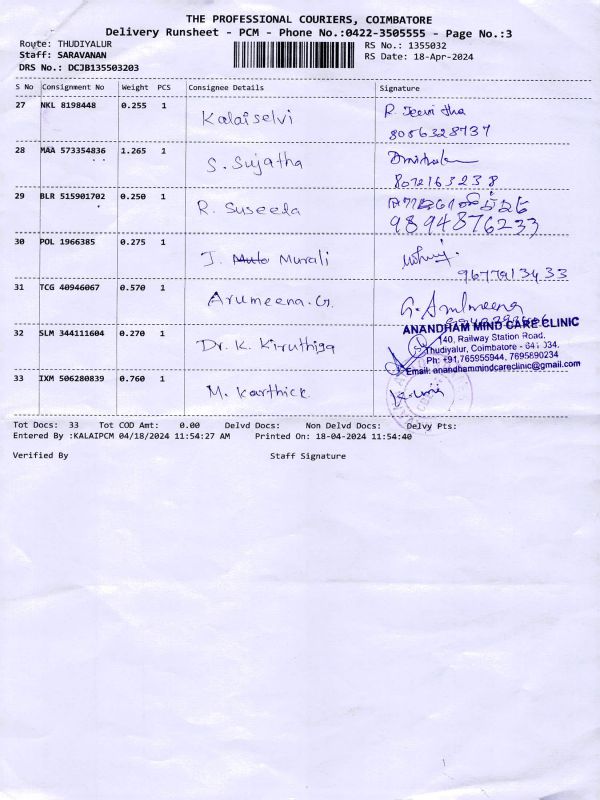 THE PROFESSIONAL COURIERS, COIMBATORE
Delivery Runsheet - PCM - Phone No.:0422-3505555 - Page No.:3
Route: THUDIYALUR
RS No.: 1355032
Staff: SARAVANAN
RS Date: 18-Apr-2024
DRS No.: DCJB135503203
S No Consignment No Weight PCS Consignee Details Signature
27 NKL 8198448 0.255 1 Kalaiselvi
8056328737
28 MAA 573354836 1.265 1 S. Sujatha
8072163238
29 BLR 515901702 0.250 1 R. Suseela
9894876233
30 POL 1966385 0.275 1 J. Murali
9677913433
31 TCG 40946067 0.570 1 Arumeena.G. G. Arumeena
32 SLM 344111604 0.270 1 Dr. K. Kiruthiga
ANANDHAM MIND CARE CLINIC
140, Railway Station Road,
Thudiyalur, Coimbatore - 641 034.
Ph: +91,765955944, 7695690234
Email: anandhammindcareclinic@gmail.com
33 IXM 506280839 0.760 1 M. Karthick
Tot Docs: 33 Tot COD Amt: 0.00 Delvd Docs: Non Delvd Docs: Delvy Pts:
Entered By :KALAIPCM 04/18/2024 11:54:27 AM Printed On: 18-04-2024 11:54:40
Verified By Staff Signature